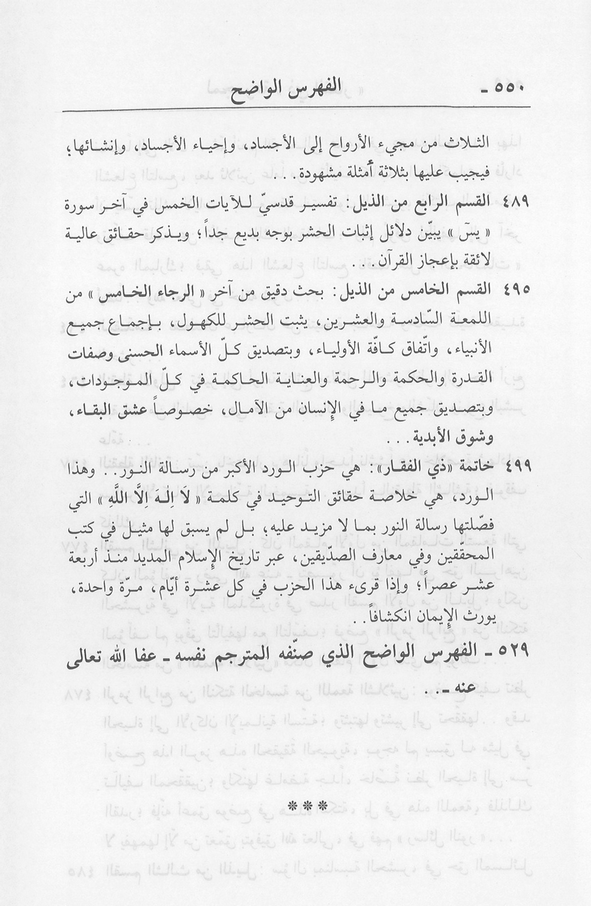 ٥٥٠ - الفهرس الواضح
الثلاث من مجيء الأرواح إلى الأجساد، وإحياء الأجساد، وإنشائها؛
فيجيب عليها بثلاثة أمثلة مشهودة...
٤٨٩ القسم الرابع من الذيل: تفسير قدسيّ للآيات الخمس في آخر سورة
« يسۤ » يبيّن دلائل إثبات الحشر بوجه بديع جداً؛ ويذكر حقائق عالية
لائقة بإعجاز القرآن...
٤٩٥ القسم الخامس من الذيل: بحث دقيق من آخر « الرجاء الخامس » من
اللمعة السّادسة والعشرين، يثبت الحشر للكهول، بإجماع جميع
الأنبياء، واتّفاق كافّة الأولياء، وبتصديق كلّ الأسماء الحسنى وصفات
القدرة والحكمة والرحمة والعناية الحاكمة في كلّ الموجودات،
وبتصديق جميع ما في الإنسان من الآمال، خصوصاً عشق البقاء،
وشوق الأبدية...
٤٩٩ خاتمة «ذي الفقار»: هي حزب الورد الأكبر من رسالة النور.. وهذا
الورد، هي خلاصة حقائق التوحيد في كلمة « لَا إِلهَ اِلاَّ اللَّهِ » التي
فصّلتها رسالة النور بما لا مزيد عليه؛ بل لم يسبق لها مثيل في كتب
المحقّقين وفي معارف الصدّيقين، عبر تاريخ الإسلام المديد منذ أربعة
عشر عصراً؛ وإذا قرىء هذا الحزب في كل عشرة أيّام، مرّة واحدة،
يورث الإيمان انكشافاً..
٥٢٩ - الفهرس الواضح الذي صنّفه المترجم نفسه - عفا الله تعالى
عنه -..
***